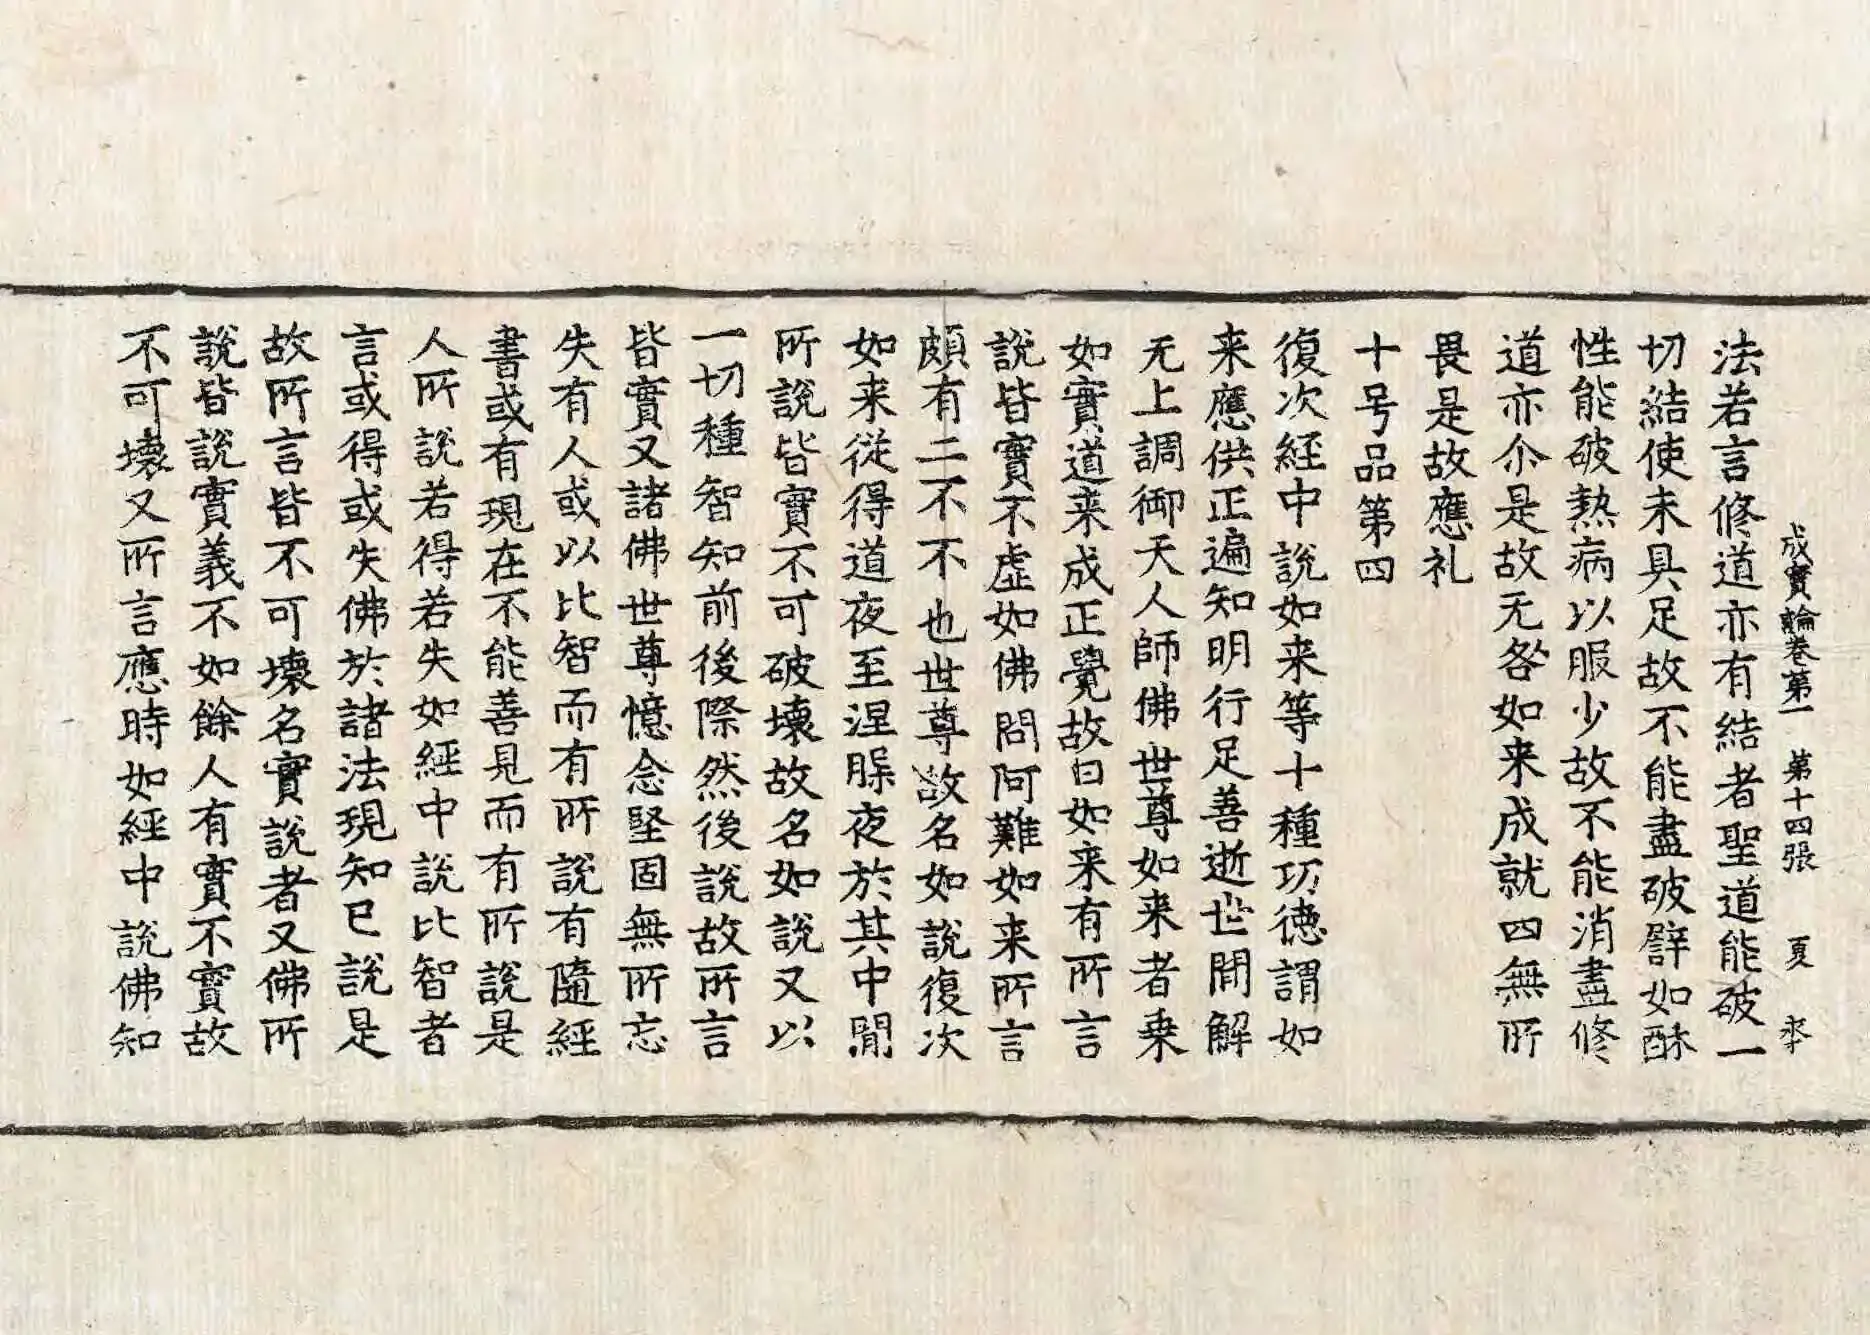 成實論卷第一　第十四張　夏
法若言修道亦有結者聖道能破一
切結使未具足故不能盡破譬如酥
性能破熱病以服少故不能消盡修
道亦尒是故无咎如来成就四無所
畏是故應礼
十号品第四
復次經中說如来等十種功德謂如
来應供正遍知明行足善逝世間解
无上調御天人師佛世尊如来者乗
如實道来成正覺故曰如来有所言
說皆實不虛如佛問阿難如来所言
頗有二不不也世尊故名如說復次
如来從得道夜至涅槃夜於其中間
所說皆實不可破壞故名如說又以
一切種智知前後際然後說故所言
皆實又諸佛世尊憶念堅固無所忘
失有人或以比智而有所說有隨經
書或有現在不能善見而有所說是
人所說若得若失如經中說比智者
言或得或失佛於諸法現知已說是
故所言皆不可壞名實說者又佛所
說皆說實義不如餘人有實不實故
不可壞又所言應時如經中說佛知